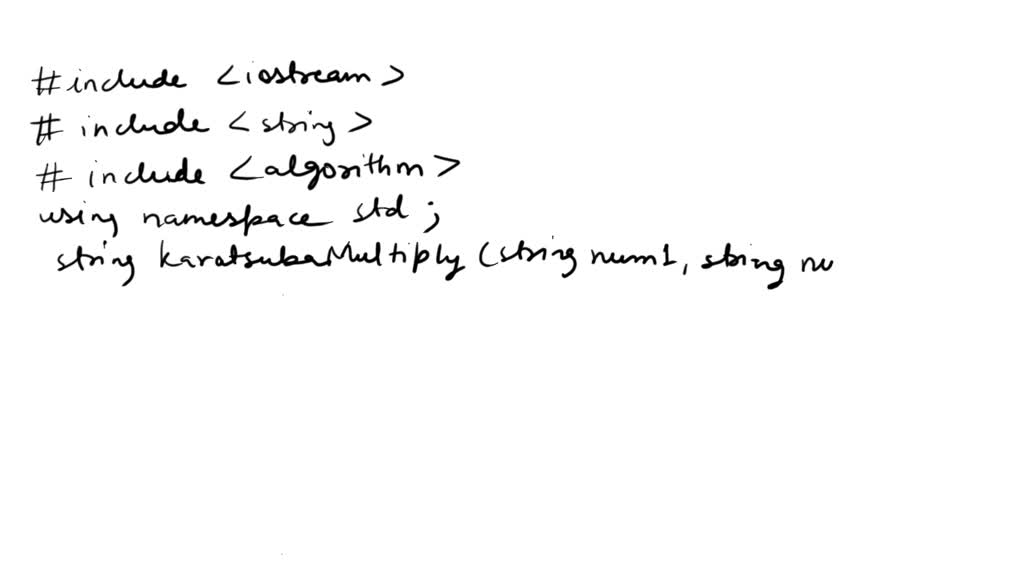 #include <iostream>
# include <string>
# include <algorithm>
using namespace std ;
string karatsubaMultiply (string num1, string nu